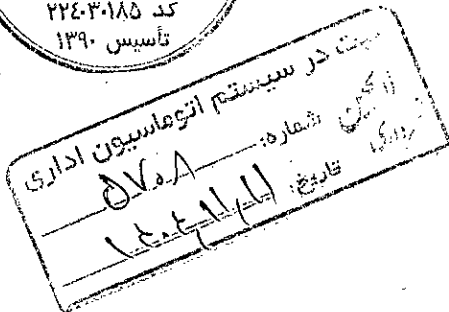 کد ۲۲۴۰۳۰۱۸۵
تأسیس ۱۳۹۰
ثبت در سیستم اتوماسیون اداری
شماره: ۵۷۰۸
تاریخ: